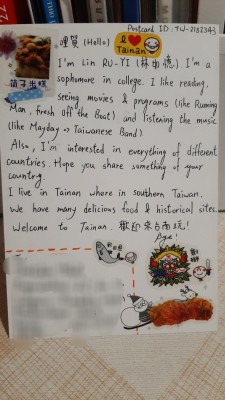 Postcard ID: TW-2182343
哩賀 (Hello)
I ♥
Tainan
筒子米糕
I'm Lin RU-YI (林). I'm a
sophomore in college. I like reading,
seeing movies & programs (like Running
Man, Fresh Off the Boat) and listening the music
(like Mayday → Taiwanese Band).
Also, I'm interested in everything of different
countries. Hope you share something of your
country.
I live in Tainan where in southern Taiwan.
We have many delicious food & historical sites.
Welcome to Tainan. 歡迎來台南玩!